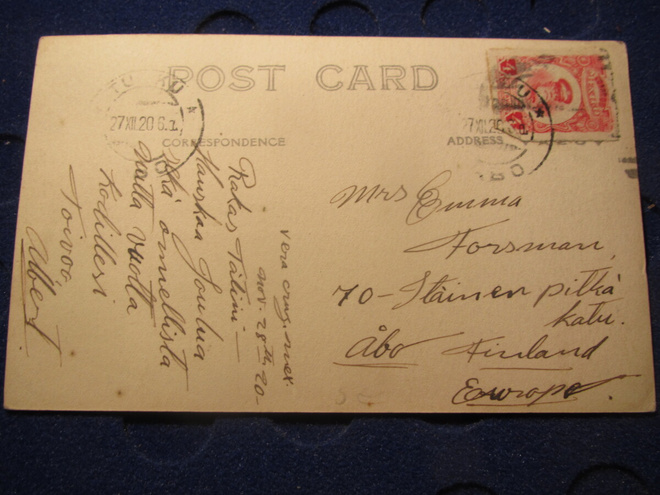 POST CARD
CORRESPONDENCE
ADDRESS
TURKU
27.XII.20.6.
27.XII.20
ÅBO
Vera Cruz, Mex.
Nov. 28th 20-
Rakas Tätini —
Hauskaa Joulua
Sekä onnellista
Uutta Vuotta
kodillesi
Toivoo
Albert.
Mrs Emma
Forsman,
70 - Itäinen pitkä
katu.
Åbo Finland
Europe.